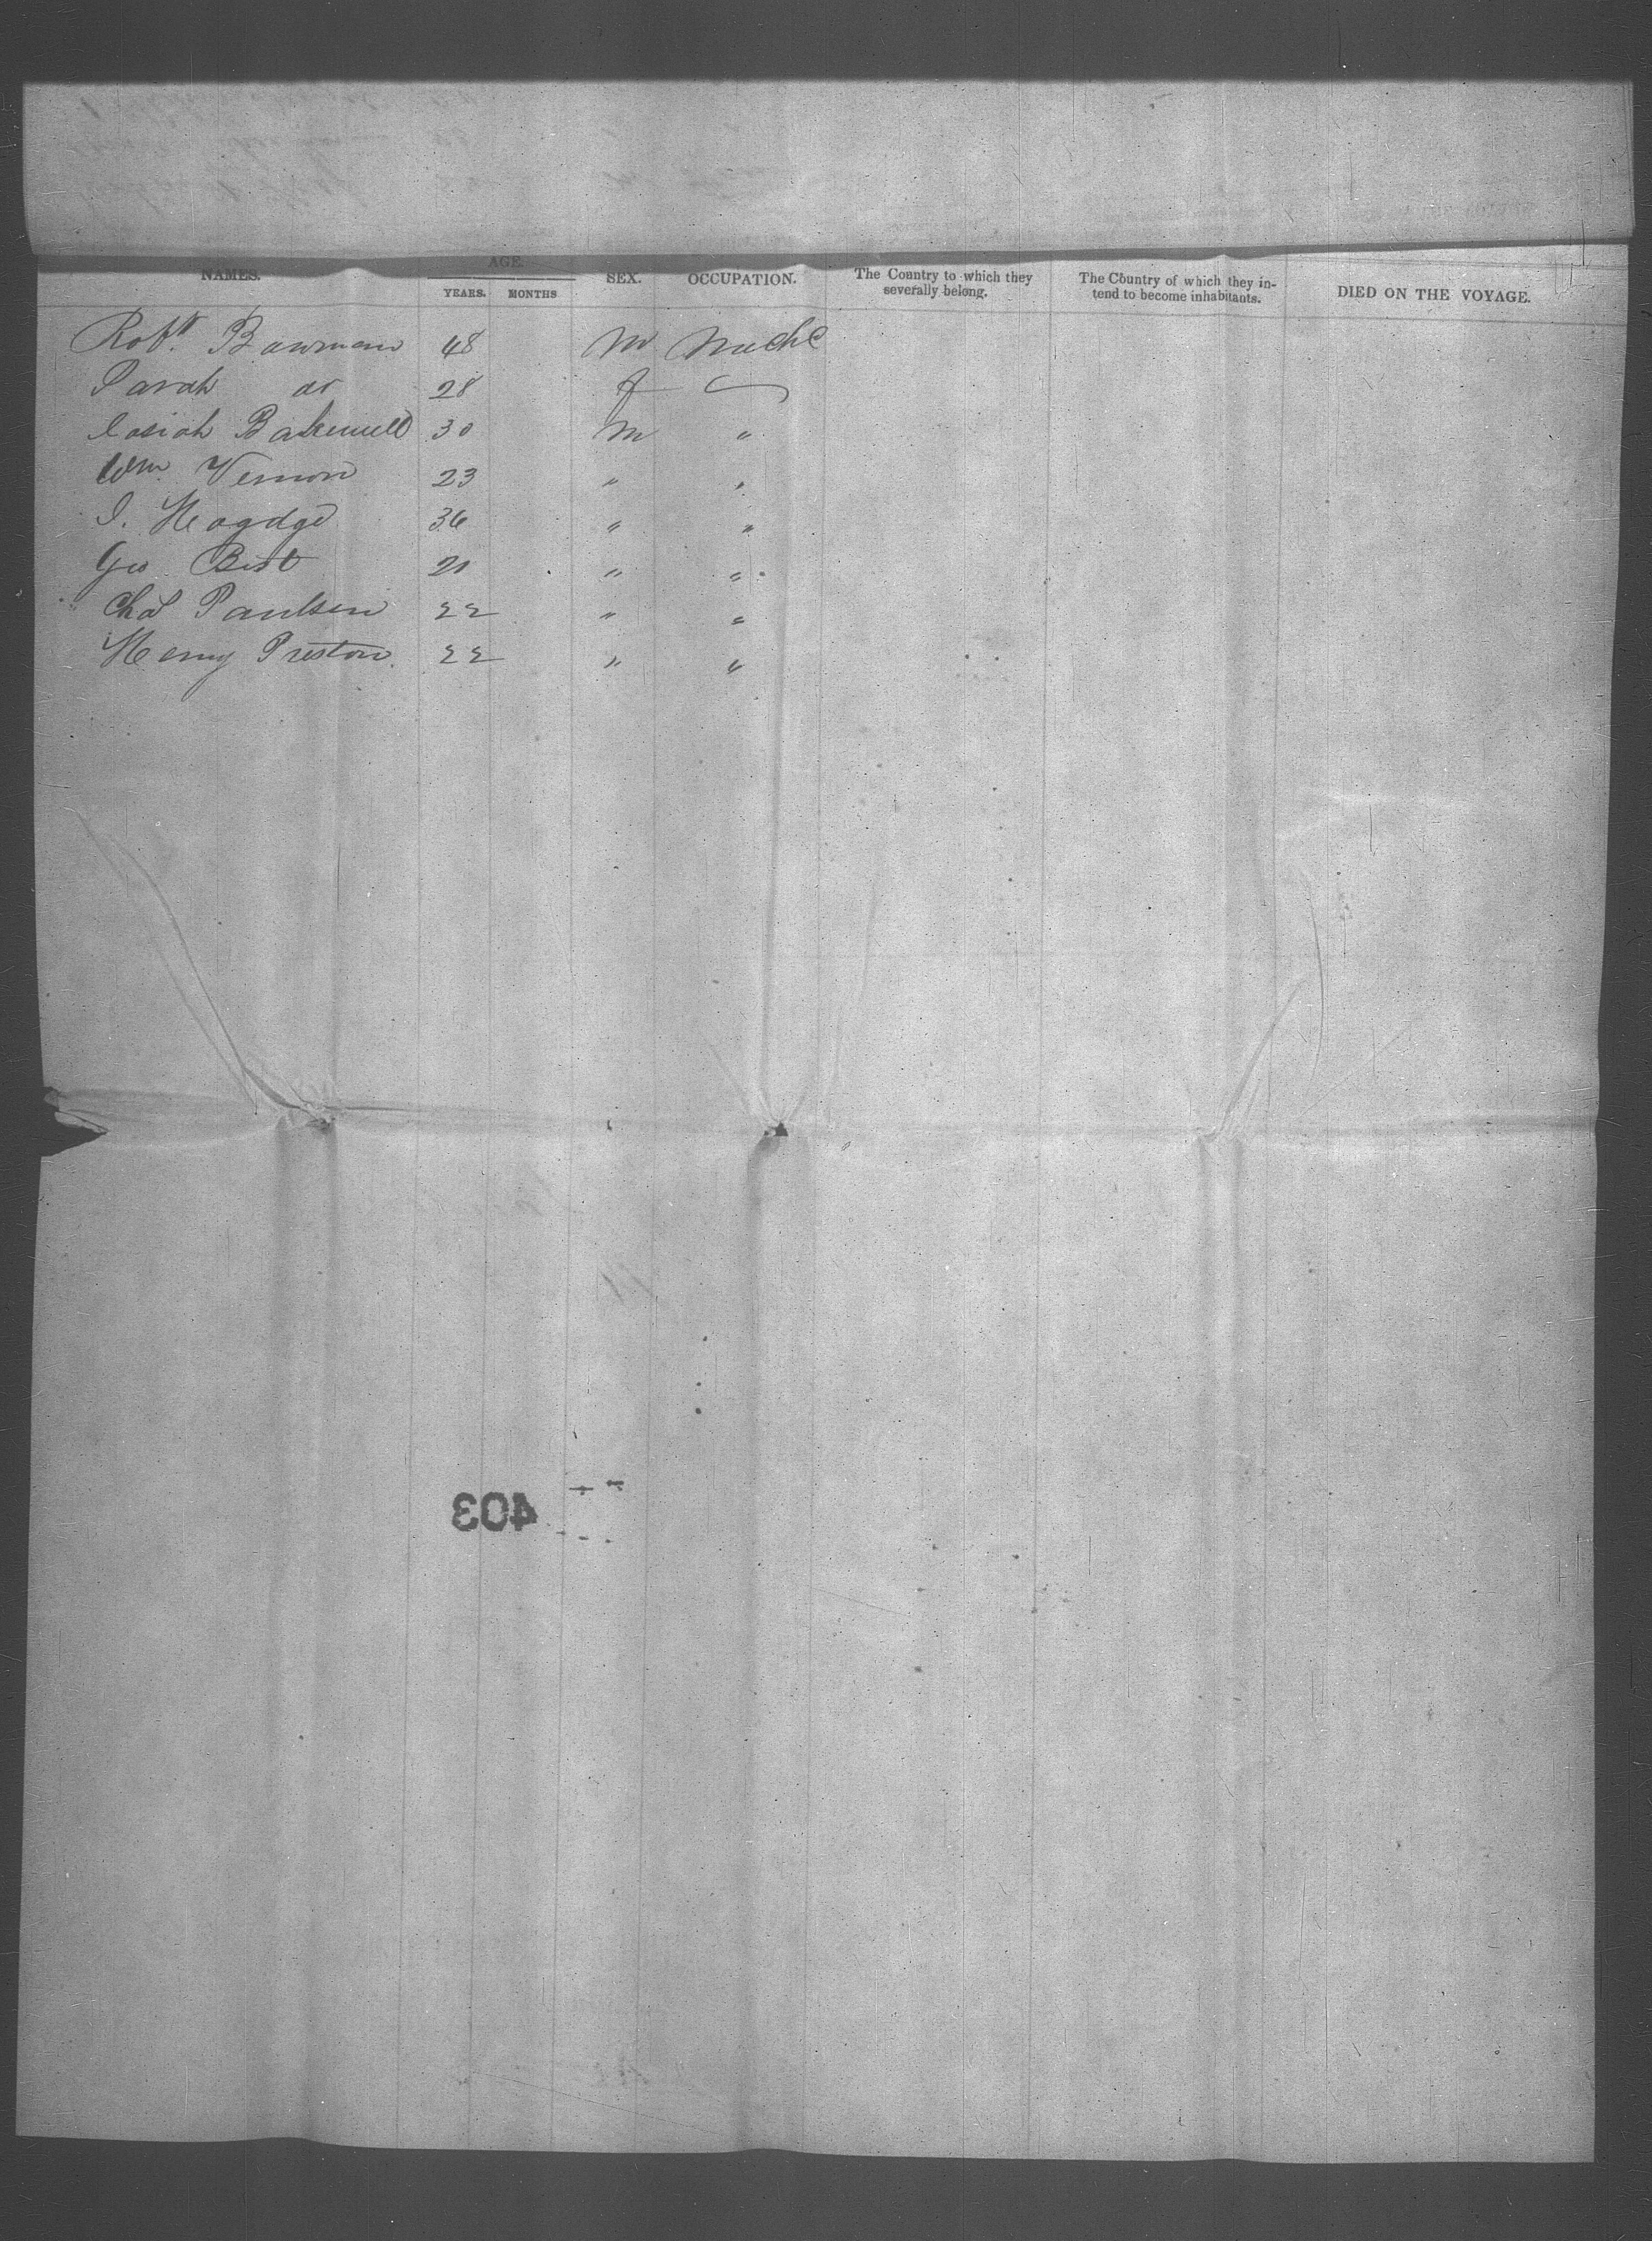 NAMES. AGE. YEARS. MONTHS SEX. OCCUPATION. The Country to which they severally belong. The Country of which they intend to become inhabitants. DIED ON THE VOYAGE.
Robt. Bowman 48 M Meche
Sarah do 28 f
Josiah Bakewell 30 M "
Wm. Vernon 23 " "
J. 36 " "
Geo Bist 21 " "
Chas Paulsen 22 " "
Henry Preston 22 " "
403